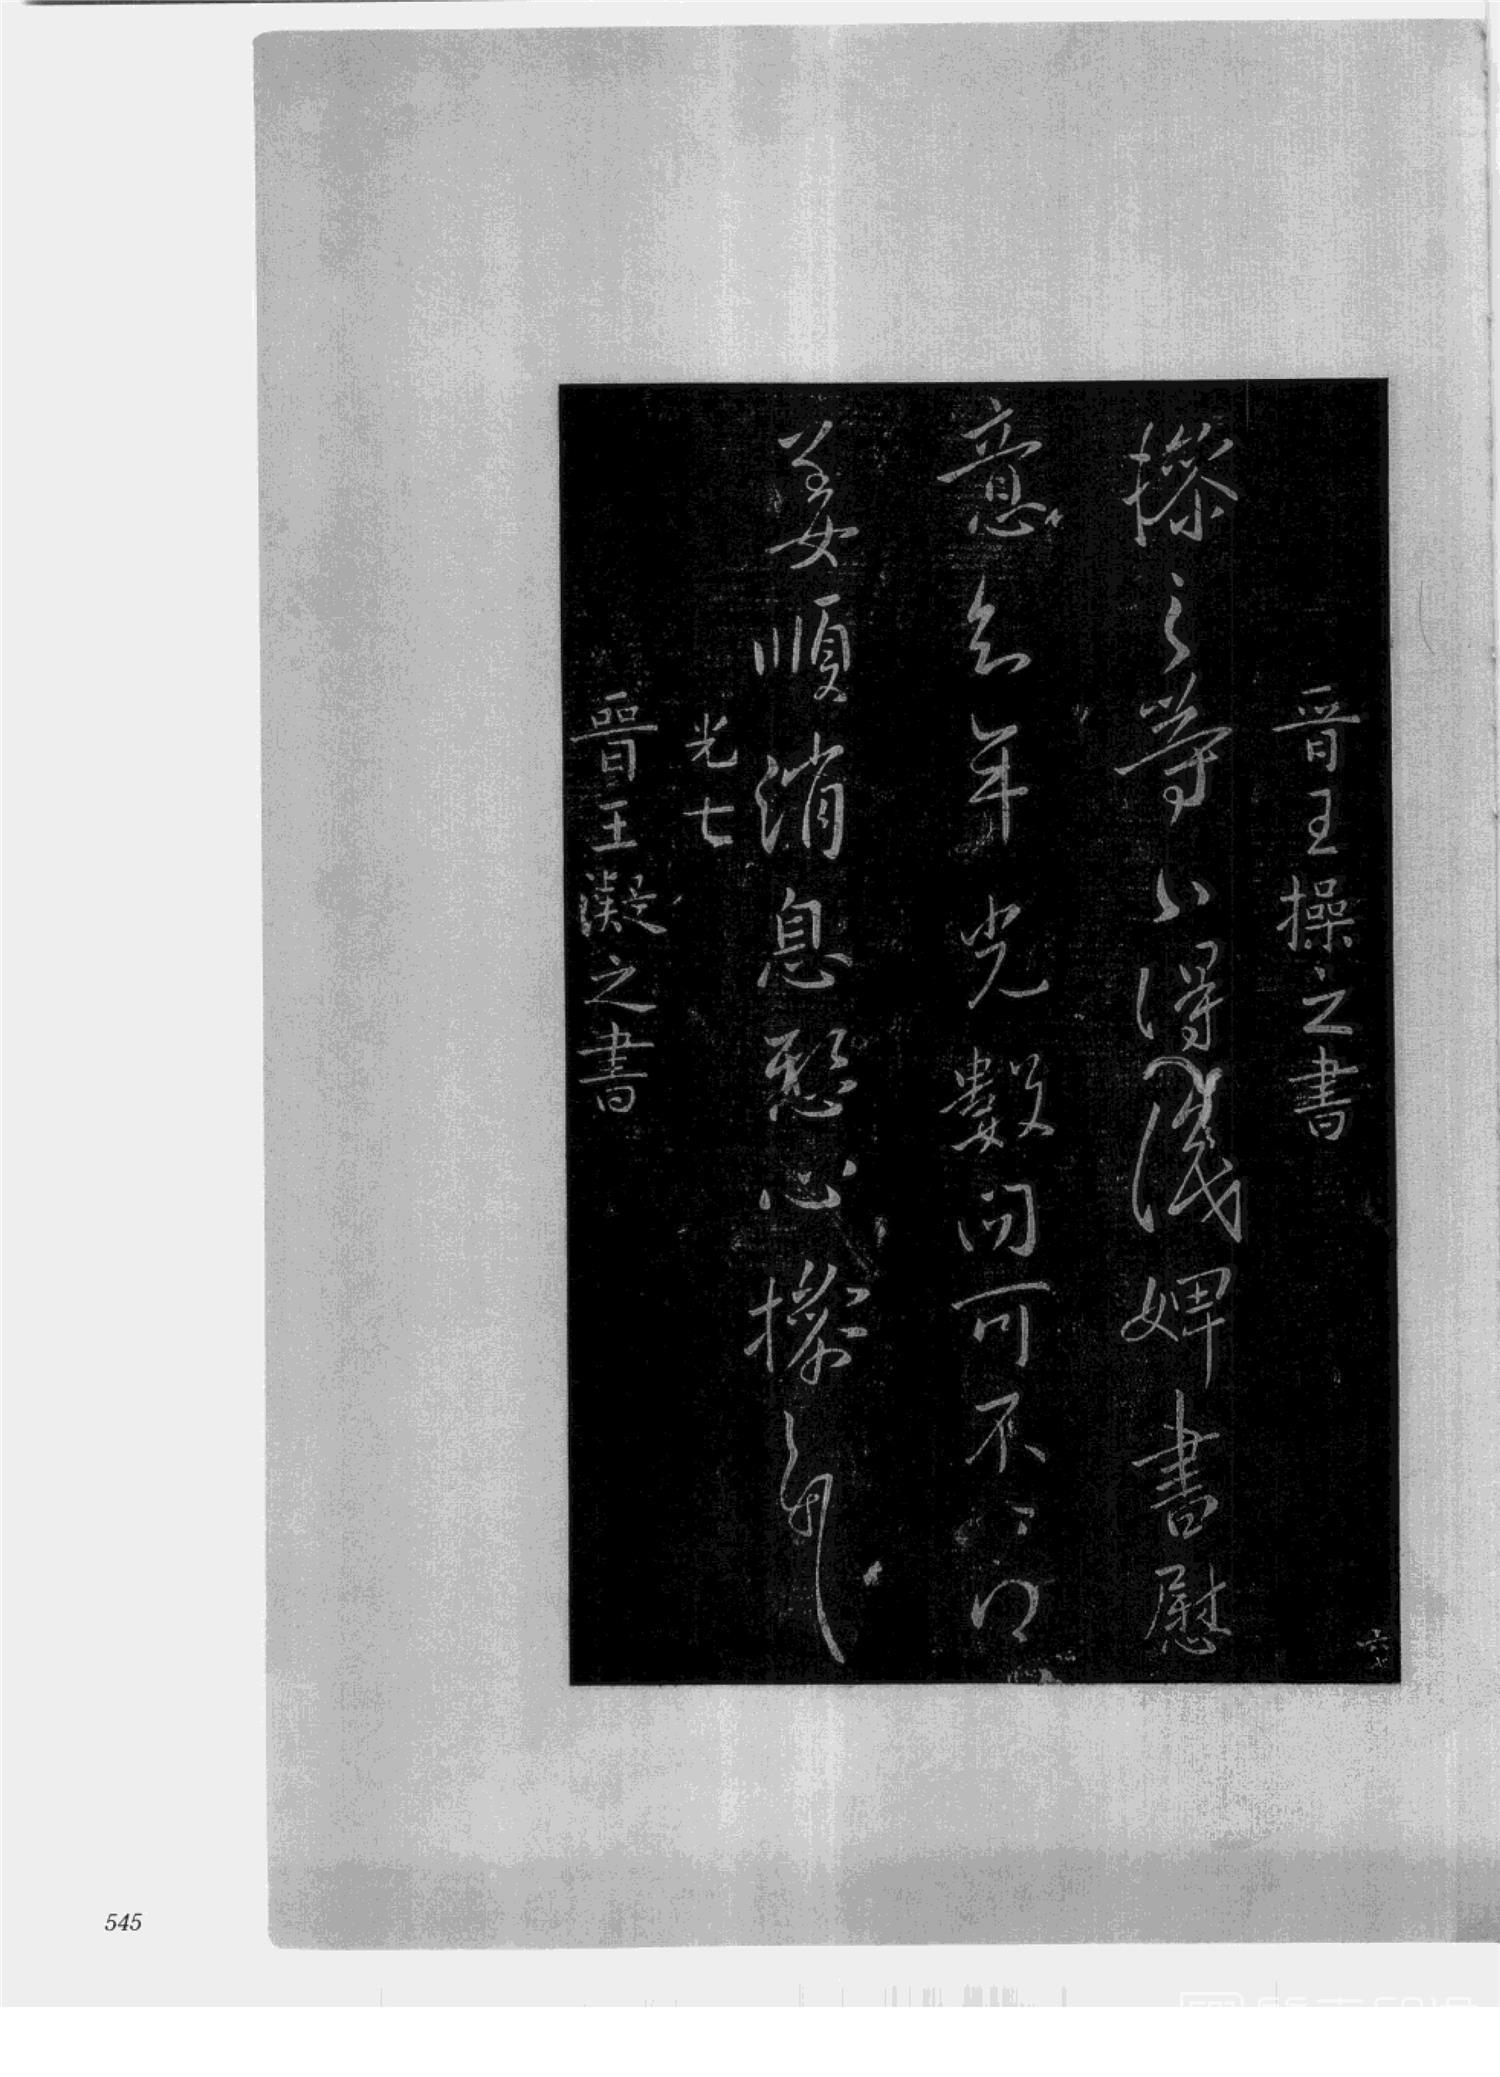 晉王操之書
操之等公得識婢書慰
意知年光數問可不
姜順消息愁心操之
光七
晉王凝之書
六七
545